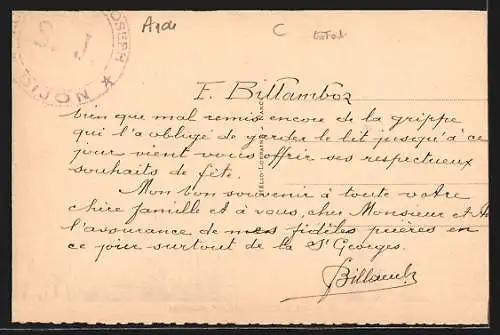 JOSEPH
S. J.
DIJON
Agde
C
F. Billamboz
bien que mal remis encore de la grippe
qui l'a obligé de garder le lit jusqu'à ce
jour vient vous offrir ses respectueux
souhaits de fête.
Mon bon souvenir à toute votre
chère famille et à vous, cher Monsieur et
l'assurance de mes fidèles prières en
ce jour surtout de la St Georges.
Billamb
HÉLIO-LORRAINE